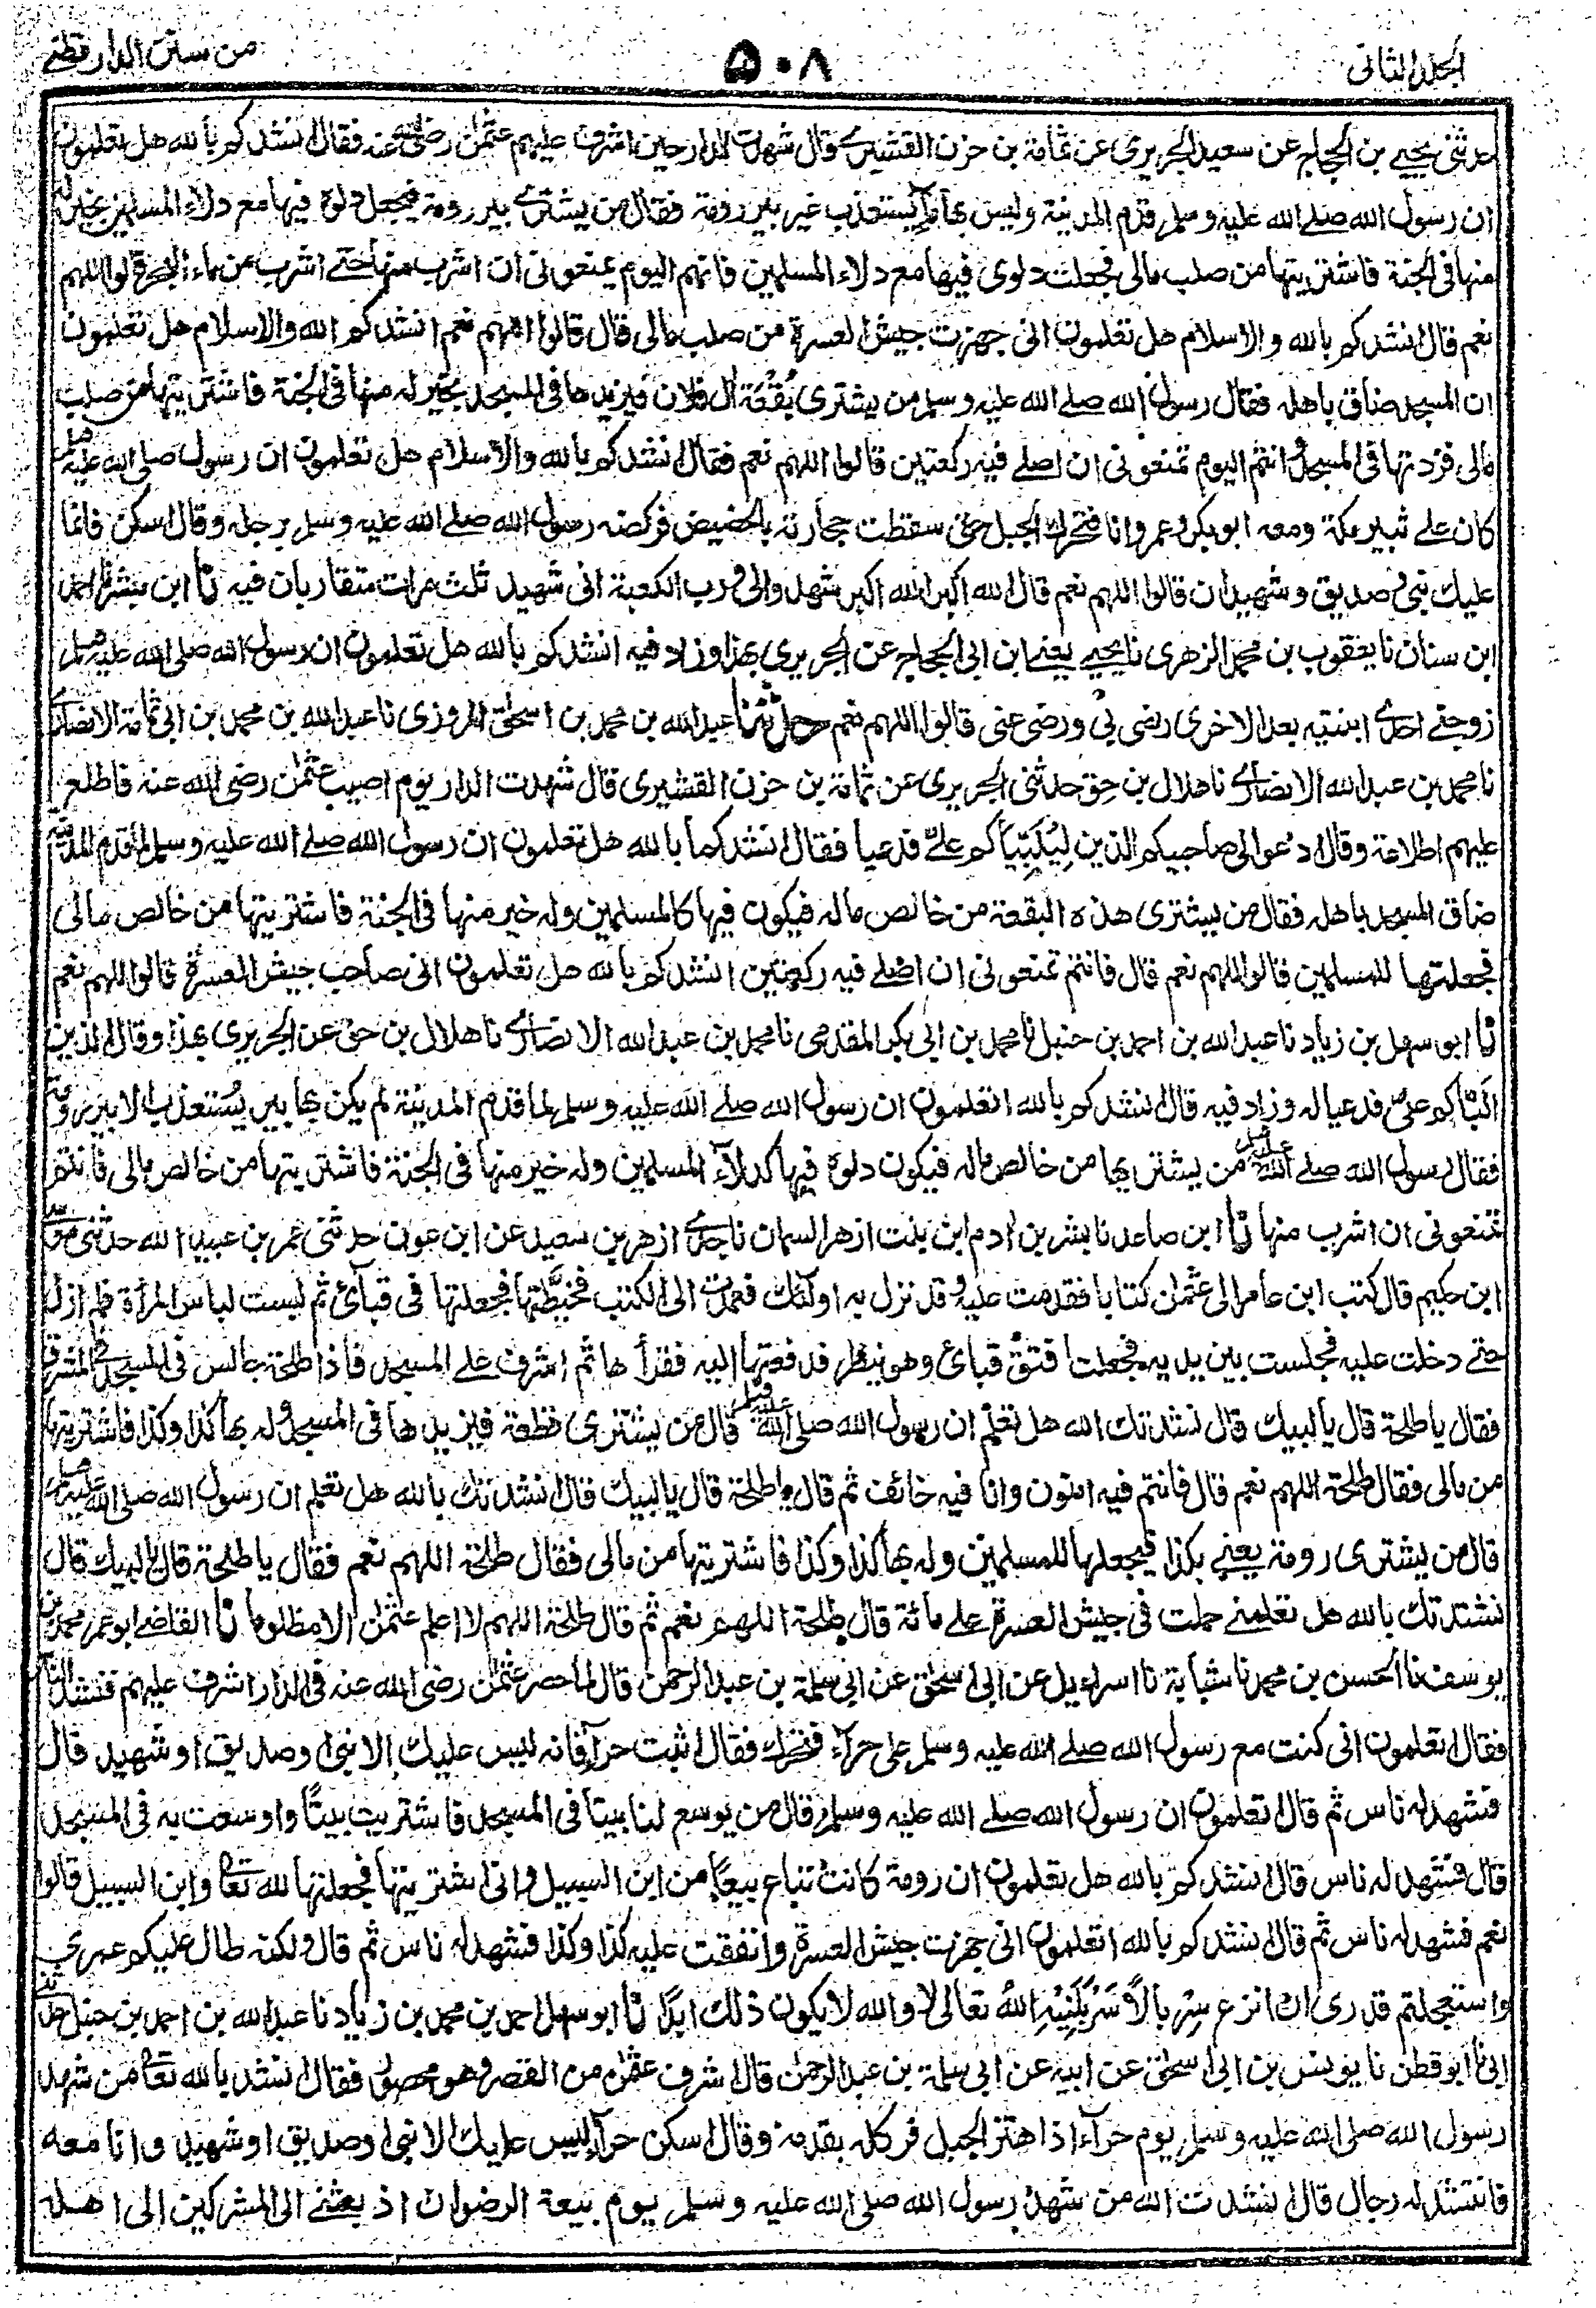 الجلد الثاني
٥٠٨
من سنن الدار قطني
حدثني يحيى بن الحجاج عن سعيد الجريري عن ثمامة بن حزن القشيري قال شهدت الدار حين اشرف عليهم عثمٰن رضي الله عنه فقال انشدكم بالله هل تعلمون
ان رسول الله صلى الله عليه وسلم قدم المدينة وليس بها ماء يستعذب غير بير رومة فقال من يشتري بير رومة فيجعل دلوه فيها مع دلاء المسلمين بخير له
منها في الجنة فاشتريتها من صلب مالي فجعلت دلوي فيها مع دلاء المسلمين فانتم اليوم تمنعوني ان اشرب منها حتى اشرب من ماء البحر قالوا اللهم
نعم قال انشدكم بالله والاسلام هل تعلمون اني جهزت جيش العسرة من صلب مالي قال قالوا اللهم نعم انشدكم الله والاسلام هل تعلمون
ان المسجد ضاق باهله فقال رسول الله صلى الله عليه وسلم من يشتري بُقْعَة آل فلان فيزيدها في المسجد بخير له منها في الجنة فاشتريتها من صلب
مالي فزدتها في المسجد وانتم اليوم تمنعوني ان اصلي فيه ركعتين قالوا اللهم نعم فقال انشدكم بالله والاسلام هل تعلمون ان رسول صلى الله عليه وسلم
كان على ثبير مكة ومعه ابو بكر وعمر وانا فتحرك الجبل حتى سقطت حجارته بالحضيض فركضه رسول الله صلى الله عليه وسلم برجله وقال اسكن فانما
عليك نبي وصديق وشهيدان قالوا اللهم نعم قال الله اكبر الله اكبر شهدوا لي ورب الكعبة اني شهيد ثلث مرات متقاربان فيه نا ابن مبشر نا احمد
ابن سنان نا يعقوب بن محمد الزهري نا يحيى يعني ابن ابي الحجاج عن الجريري بهذا وزاد فيه انشدكم بالله هل تعلمون ان رسول الله صلى الله عليه وسلم
زوجني احدى ابنتيه بعد الاخرى رضي بي ورضي عني قالوا اللهم نعم حدثنا عبد الله بن محمد بن اسحٰق المروزي نا عبد الله بن محمد بن ابي ثمامة الانصاري
نا محمد بن عبد الله الانصاري نا هلال بن حِق حدثني الجريري عن ثمامة بن حزن القشيري قال شهدت الدار يوم اصيب عثمٰن رضي الله عنه فاطلع
عليهم اطلاعة وقال ادعوا لي صاحبيكم الذين ليُلَبِّيَاكم عليّ فدعيا فقال انشدكما بالله هل تعلمون ان رسول الله صلى الله عليه وسلم لما قدم المدينة
ضاق المسجد باهله فقال من يشتري هذه البقعة من خالص ماله فيكون فيها كالمسلمين وله خير منها في الجنة فاشتريتها من خالص مالي
فجعلتها للمسلمين قالوا اللهم نعم قال فانتم تمنعوني ان اصلي فيه ركعتين انشدكم بالله هل تعلمون اني صاحب جيش العسرة قالوا اللهم نعم
نا ابو سهل بن زياد نا عبد الله بن احمد بن حنبل نا محمد بن ابي بكر المقدمي نا محمد بن عبد الله الانصاري نا هلال بن حق عن الجريري بهذا وقال الذين
اَلَّبَاكم عليّ فدعيا له وزاد فيه قال انشدكم بالله اتعلمون ان رسول الله صلى الله عليه وسلم لما قدم المدينة لم يكن بها بير يُستعذب الا بير رومة
فقال رسول الله صلى الله عليه وسلم من يشتريها من خالص ماله فيكون دلوه فيها كدلاء المسلمين وله خير منها في الجنة فاشتريتها من خالص مالي فانتم
تمنعوني ان اشرب منها نا ابن صاعد نا بشر بن ادم ابن بنت ازهر السمان نا جدي ازهر بن سعيد عن ابن عون حدثني عمر بن عبيد الله حدثني موسى
ابن حكيم قال كتب ابن عامر الى عثمٰن كتابا فقدمت عليه وقد نزل به اولٰئك فعمدت الى الكتب فخيّطتها فجعلتها في قبائي ثم لبست لباس المرأة فلم ازل
حتى دخلت عليه فجلست بين يديه فجعلت افتق قبائي وهو ينظر فدفعتها اليه فقرأها ثم اشرف على المسجد فاذا طلحة جالس في المسجد في المشرق
فقال يا طلحة قال يا لبيك قال نشدتك الله هل تعلم ان رسول الله صلى الله عليه وسلم قال من يشتري قطعة فيزيدها في المسجد وله بها كذا وكذا فاشتريتها
من مالي فقال طلحة اللهم نعم قال فانتم فيه امنون وانا فيه خائف ثم قال يا طلحة قال يا لبيك قال انشدتك بالله هل تعلم ان رسول الله صلى الله عليه وسلم
قال من يشتري رومة يعني بكذا فيجعلها للمسلمين وله بها كذا وكذا فاشتريتها من مالي فقال طلحة اللهم نعم فقال يا طلحة قال يا لبيك قال
نشدتك بالله هل تعلمني حملت في جيش العسرة على مائة قال طلحة اللهم نعم ثم قال طلحة اللهم لا اعلم عثمٰن الا مظلوما نا القاضي ابو عمر محمد بن
يوسف نا الحسن بن محمد نا شبابة نا اسراءيل عن ابي اسحٰق عن ابي سلمة بن عبد الرحمن قال لما حصر عثمٰن رضي الله عنه في الدار اشرف عليهم فنشد الناس
فقال اتعلمون اني كنت مع رسول الله صلى الله عليه وسلم على حراء فتحرك فقال اثبت حراء فانه ليس عليك الا نبي او صديق او شهيد قال
فشهد له ناس ثم قال اتعلمون ان رسول الله صلى الله عليه وسلم قال من يوسع لنا بيتا في المسجد فاشتريت بيتًا واوسعت به في المسجد
قال فشهد له ناس قال انشدكم بالله هل تعلمون ان رومة كانت تباع بيعًا من ابن السبيل واني اشتريتها فجعلتها لله تعالى وابن السبيل قالوا
نعم فشهد له ناس ثم قال انشدكم بالله اتعلمون اني جهزت جيش العسرة وانفقت عليه كذا وكذا فشهد له ناس ثم قال ولكنه طال عليكم عمري
واستعجلتم قدري ان انزع سِرْبالًا سَرْبَلَنِيْهِ اللهُ تعالى لا والله لا يكون ذلك ابدًا نا ابو سهل احمد بن محمد بن زياد نا عبد الله بن احمد بن حنبل حدثني
ابي نا ابو قطن نا يونس بن ابي اسحٰق عن ابيه عن ابي سلمة بن عبد الرحمٰن قال اشرف عثمٰن من القصر وهو محصور فقال انشد بالله تعالى من شهد
رسول الله صلى الله عليه وسلم يوم حراء اذ اهتز الجبل فركله بقدمه وقال اسكن حراء ليس عليك الا نبي او صديق او شهيد وانا معه
فانتشد له رجال قال انشدت الله من شهد رسول الله صلى الله عليه وسلم يوم بيعة الرضوان اذ بعثني الى المشركين الى اهله